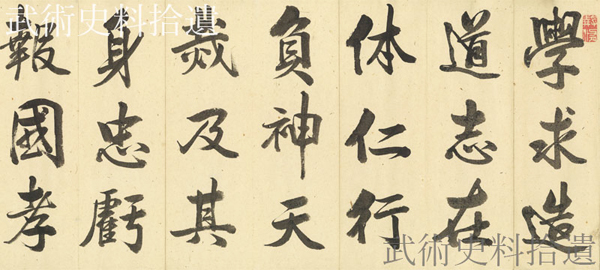 學求造
道志在
体仁行
負神天
烖及其
身忠虧
報國孝
武術史料拾遺
武術史料拾遺